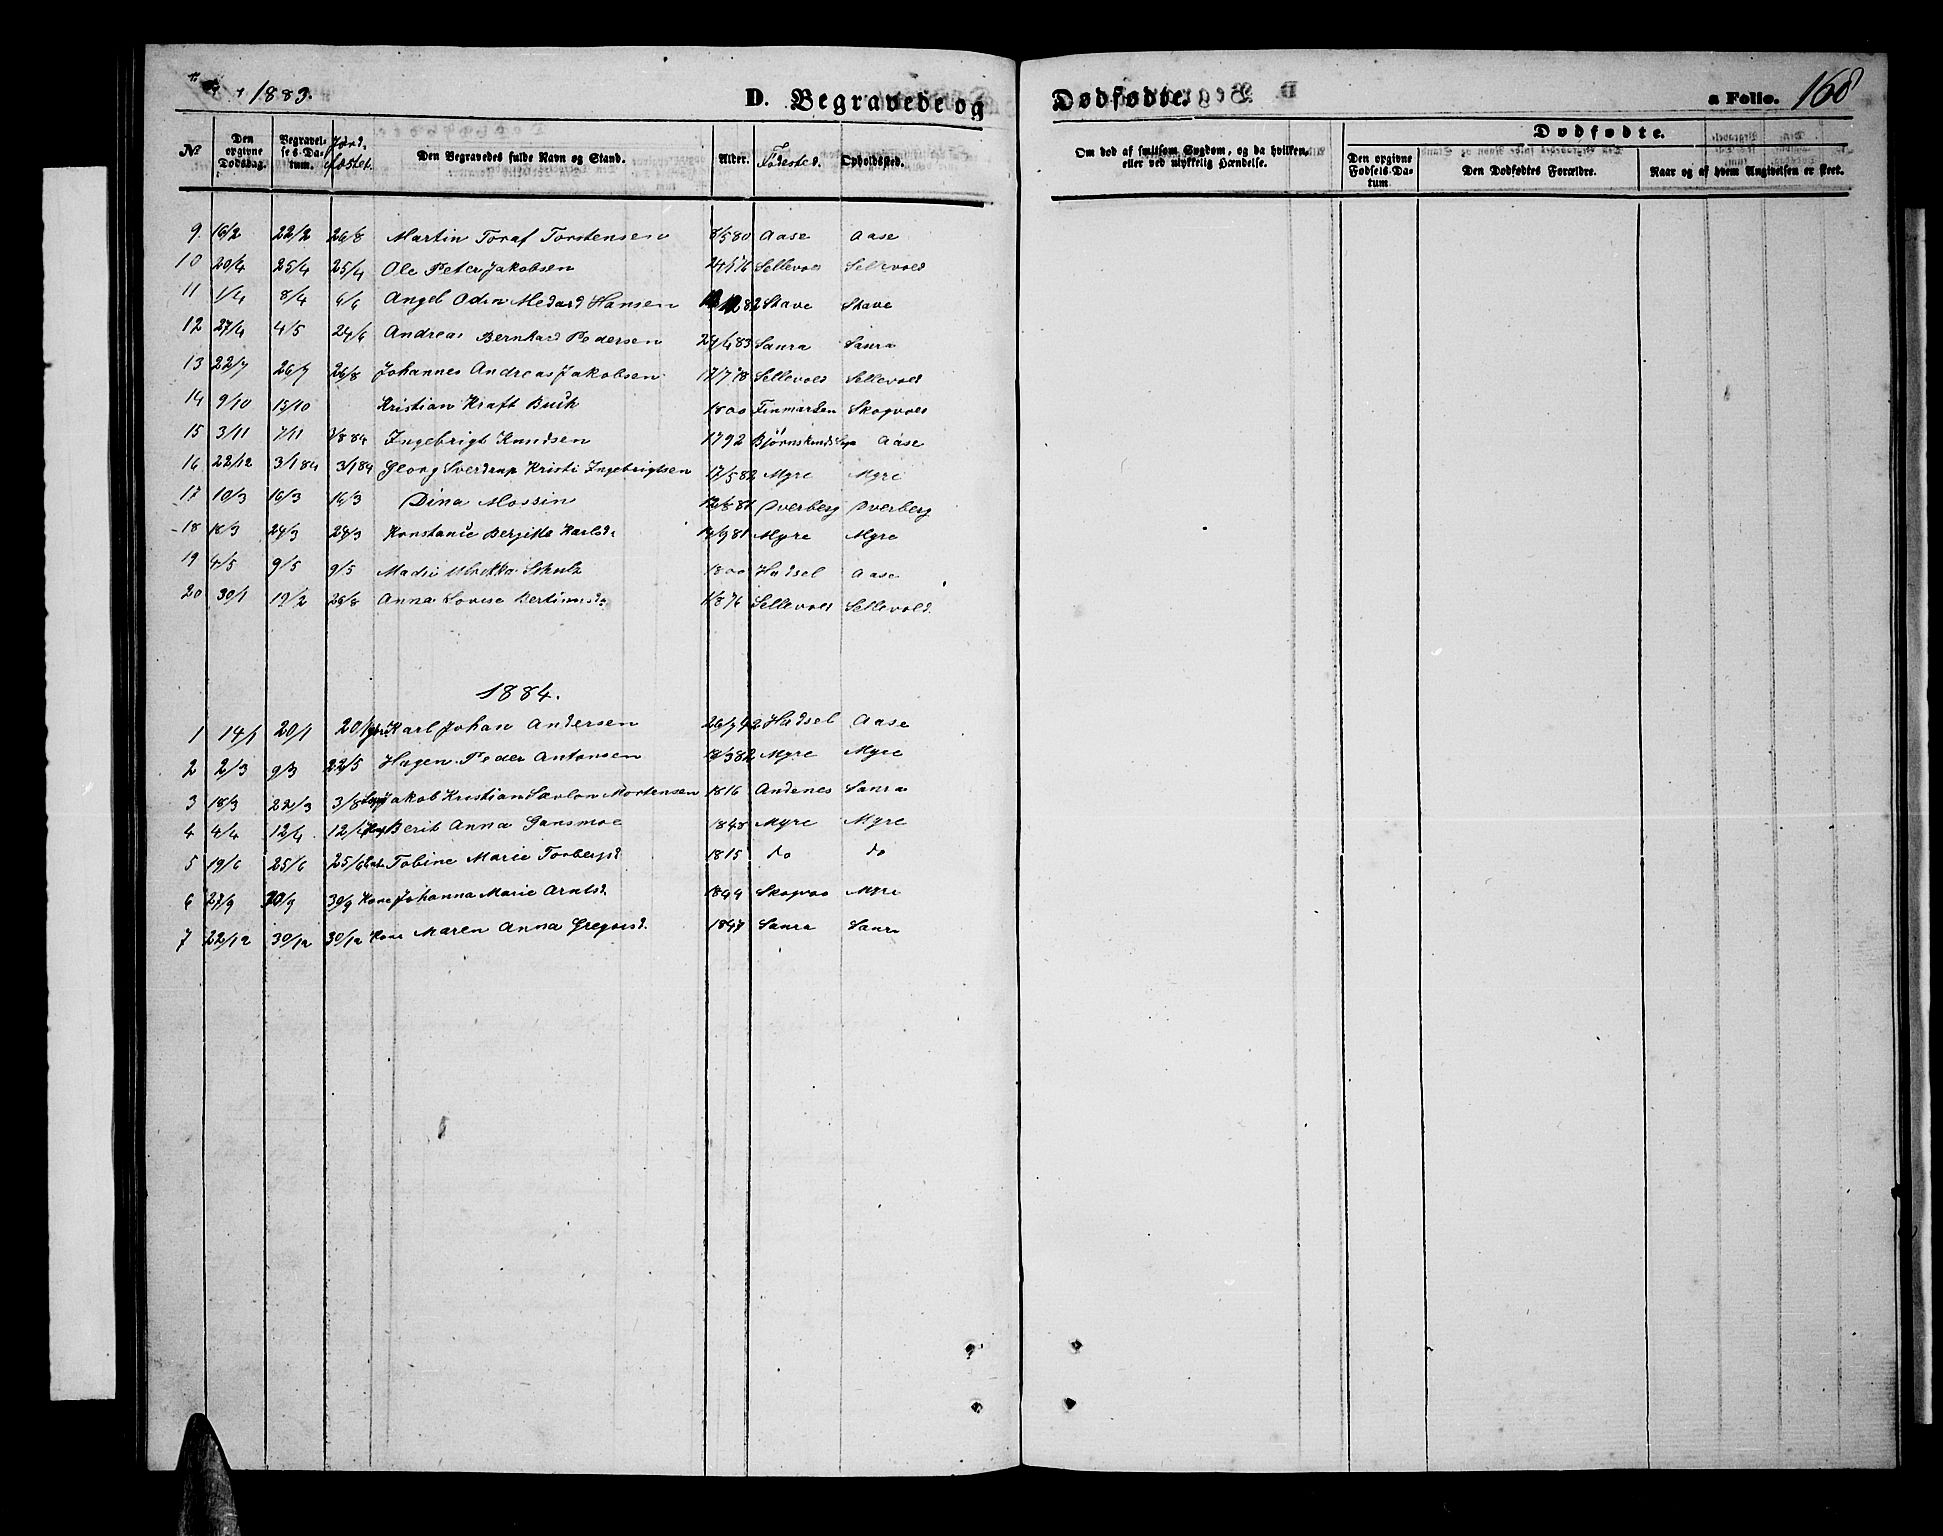 1883.
D. Begravede og Dødfødte. a Folio. 168
No
Den opgivne Dødsdag.
Begravelses-Datum.
Jordfæstet.
Den Begravedes fulde Navn og Stand.
Alder.
Fødested.
Opholdssted.
Om død af smitsom Sygdom, og da hvilken, eller ved ulykkelig Hændelse.
Dødfødte.
Den opgivne Fødsels-Datum
Den Dødfødtes Forældre.
Naar og af hvem Angivelsen er skeet.
9. 16/2 22/2 26/8 Martin Toraf Torstensen 8/5 80 Aase Aase
10 20/4 25/4 25/4 Ole Peter Jakobsen Sellevold Sellevold
11 1/4 8/4 6/6 Angel Odin Medard Hansen 82 Stave Stave
12 27/4 4/5 24/6 Andreas Bernhard Pedersen 24/4 83 Saura Saura
13 22/7 26/7 26/8 Johannes Andreas Jakobsen 17/7 78 Sellevold Sellevold
14 9/10 15/10 Kristian Kraft Buck 1800 Finmarken Skogvold
15 3/11 7/11 3/8 84 Ingebrigt Knudsen 1792 Bjørnskind Aase
16 22/12 3/1 84 3/1 84 Georg Sverdrup Kristi Ingebrigtsen 17/5 82 Myre Myre
17 10/3 16/3 16/3 Dina Mossin 12/8 81 Overberg Overberg
18 18/3 24/3 24/3 Konstance Berjitte Karlsd. 81 Myre Myre
19 4/5 9/5 9/5 Madli Ulrikka Schulz 1800 Hadsel Aase
20 30/1 19/2 26/8 Anna Lovise Bertinusd. 1/8 76 Sellevold Sellevold
1884.
1 14/1 20/1 20/1 Karl Johan Andersen 26/7 42 Hadsel Aase
2 2/3 9/3 22/5 Hagen Peder Antonsen 18/3 82 Myre Myre
3 18/3 22/3 3/8 Jakob Kristian Savlon Mortensen 1816 Andenes Saura
4 4/4 12/4 12/4 Berit Anna Gansmoe 1848 Myre Myre
5 19/6 25/6 25/6 Tobine Marie Torbergsd 1815 do do
6 27/9 30/9 30/9 Kone Johanna Marie Arntsd. 1844 Skogvold Myre
7 22/12 30/12 30/12 Kone Maren Anna Gregorsd. 1847 Saura Saura